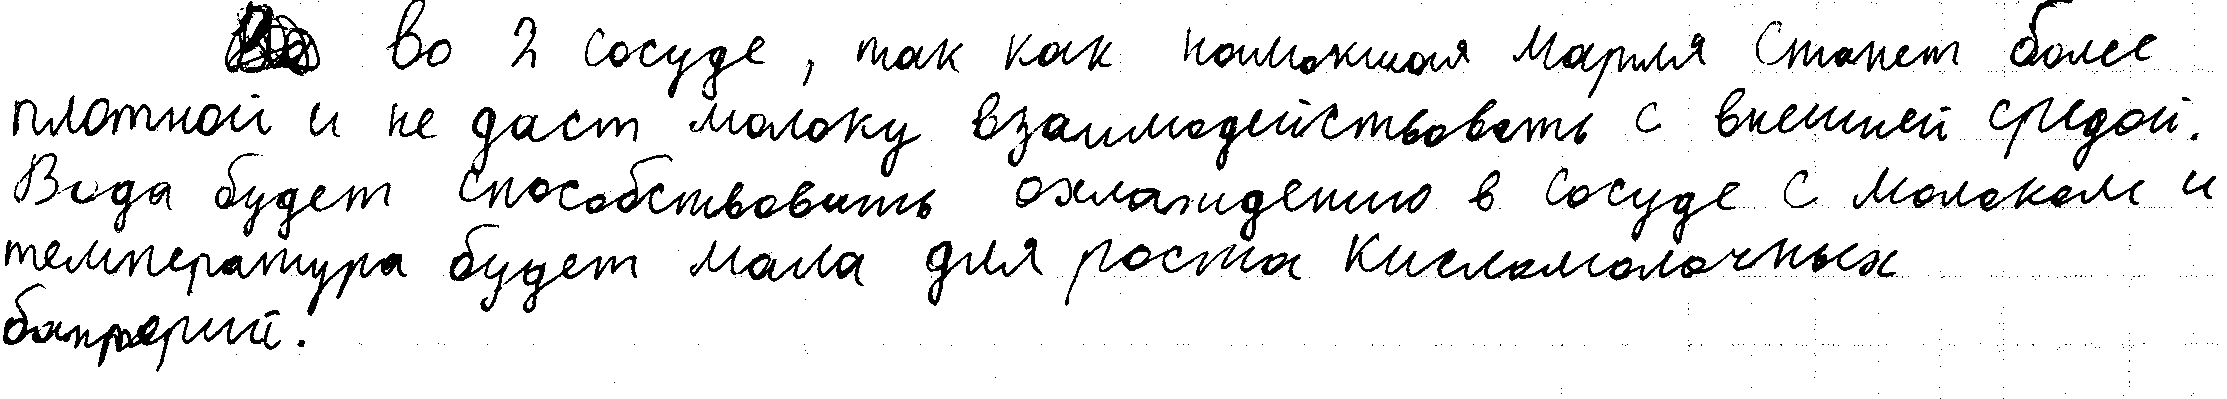 Во 2 сосуде, так как намокшая марля станет более
плотной и не даст молоку взаимодействовать с внешней средой.
Вода будет способствовать охлаждению в сосуде с молоком и
температура будет мала для роста кисломолочных
бактерий.